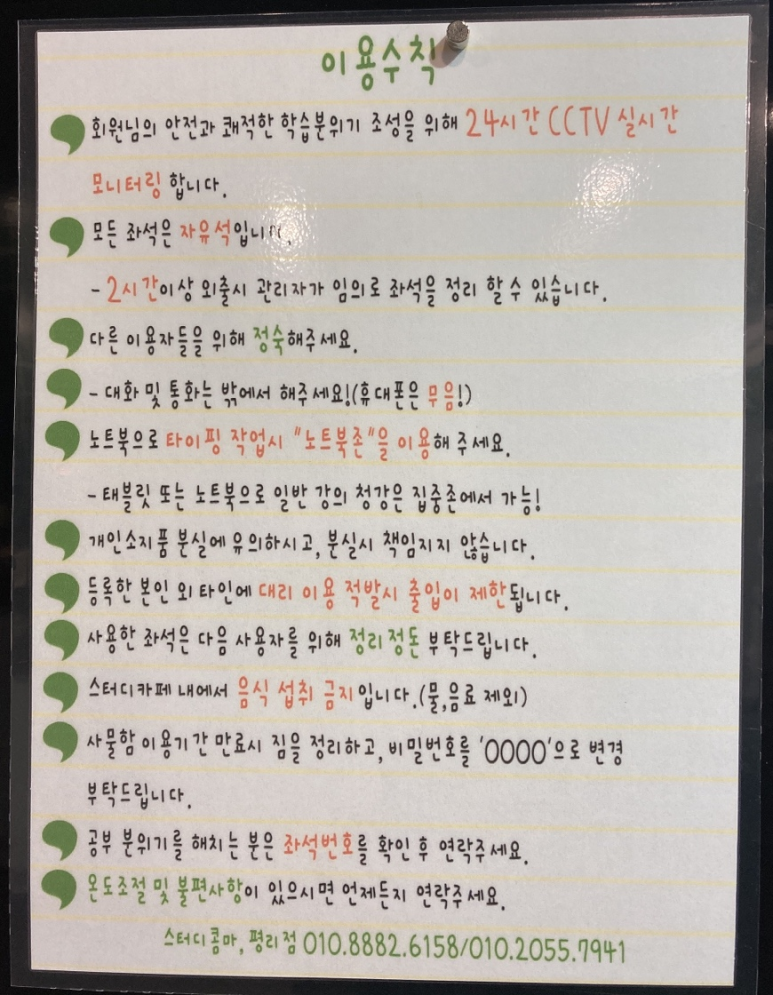 이용수칙
회원님의 안전과 쾌적한 학습분위기 조성을 위해 24시간 CCTV 실시간
모니터링 합니다.
모든 좌석은 자유석입니다.
- 2시간이상 외출시 관리자가 임의로 좌석을 정리 할 수 있습니다.
다른 이용자들을 위해 정숙해주세요.
- 대화 및 통화는 밖에서 해주세요!(휴대폰은 무음!)
노트북으로 타이핑 작업시 "노트북존"을 이용해 주세요.
- 태블릿 또는 노트북으로 일반 강의 청강은 집중존에서 가능!
개인소지품 분실에 유의하시고, 분실시 책임지지 않습니다.
등록한 본인 외 타인에 대리 이용 적발시 출입이 제한됩니다.
사용한 좌석은 다음 사용자를 위해 정리정돈 부탁드립니다.
스터디카페 내에서 음식 섭취 금지입니다.(물,음료 제외)
사물함 이용기간 만료시 짐을 정리하고, 비밀번호를 '0000'으로 변경
부탁드립니다.
공부 분위기를 해치는 분은 좌석번호를 확인 후 연락주세요.
온도조절 및 불편사항이 있으시면 언제든지 연락주세요.
스터디콤마, 평리점 010.8882.6158/010.2055.7941